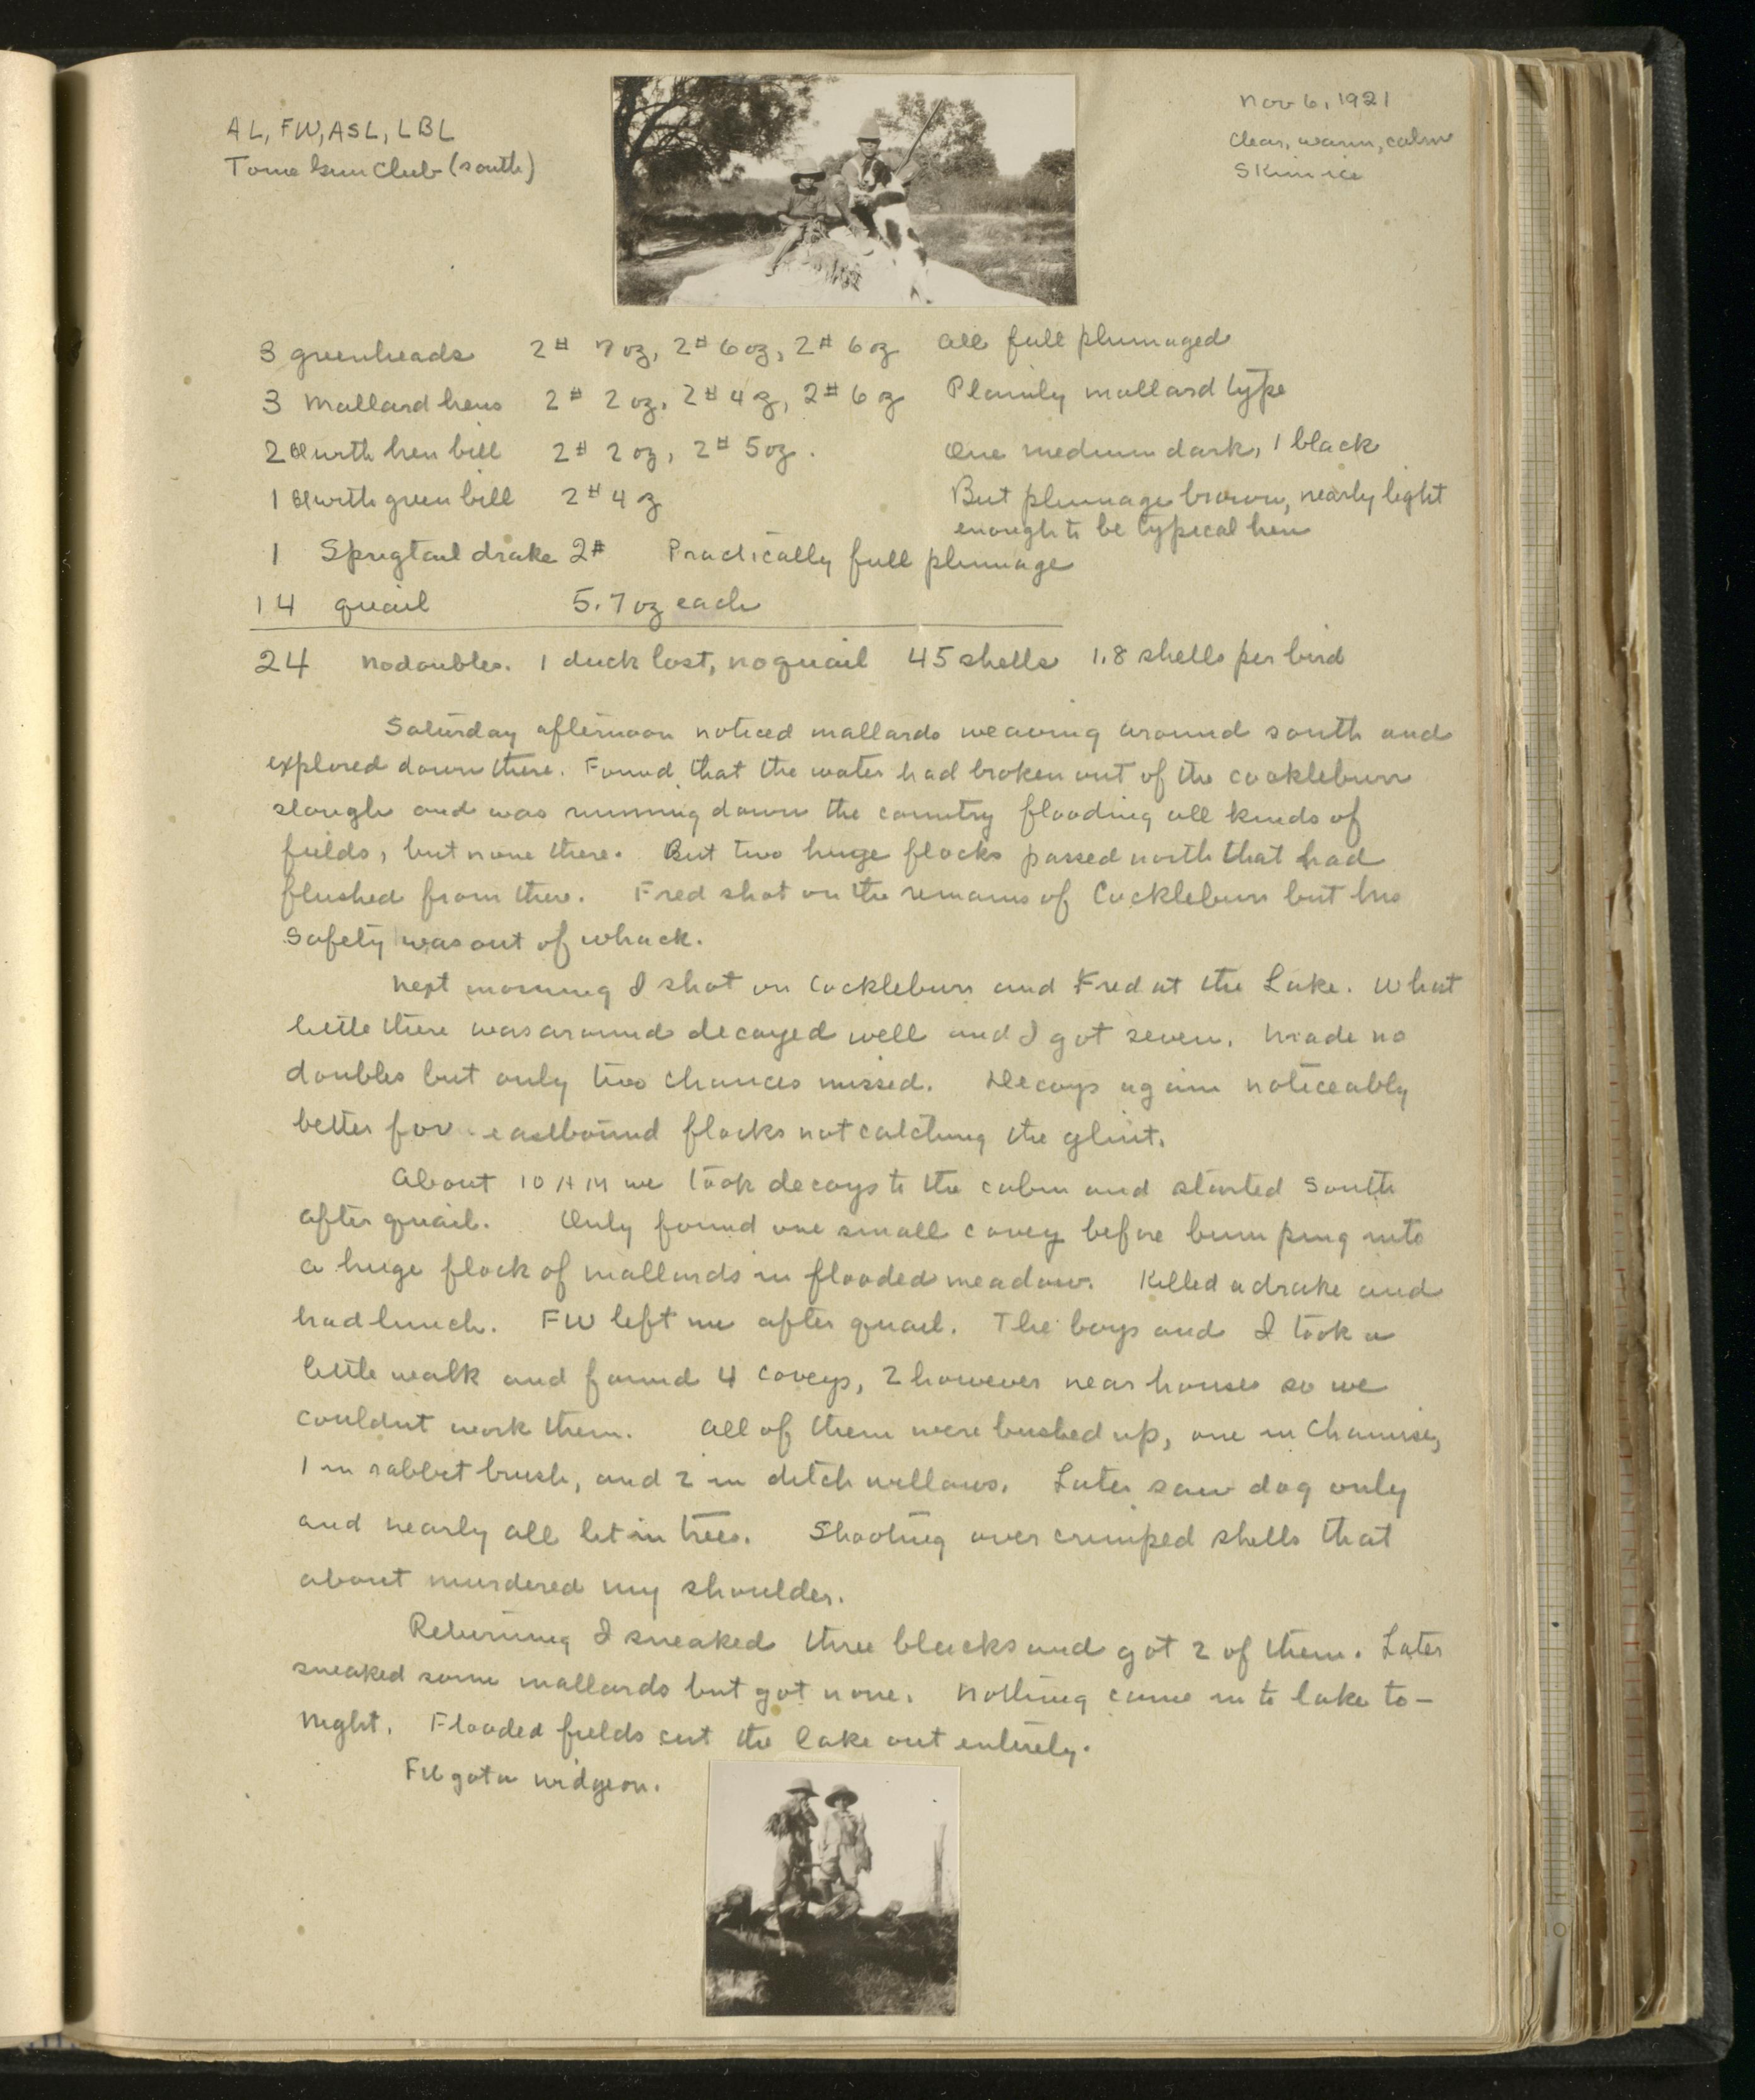 AL, FW, ASL, LBL
Tome Gun Club (south)
Nov 6, 1921
Clear, warm, calm
Skim ice
3 greenheads 2# 7 oz, 2# 6 oz, 2# 6 oz All full plumaged
3 Mallard hens 2# 2 oz, 2# 4 z, 2# 6 z Plainly mallard type
2 with hen bill 2# 2 oz, 2# 5 oz. One medium dark, 1 black
1 with green bill 2# 4 z But plumage brown, nearly light
enough to be typical hen
1 Sprigtail drake 2# Practically full plumage
14 quail 5.7 oz each
24 No doubles. 1 duck lost, no quail 45 shells 1.8 shells per bird
Saturday afternoon noticed mallards weaving around south and
explored down there. Found that the water had broken out of the cocklebur
slough and was running down the country flooding all kinds of
fields, but none there. But two huge flocks passed north that had
flushed from there. Fred shot on the remains of Cocklebur but his
safety was out of whack.
Next morning I shot on Cocklebur and Fred at the Lake. What
little there was around decoyed well and I got seven. Made no
doubles but only two chances missed. Decoys again noticeably
better for eastbound flocks not catching the glint.
About 10 AM we took decoys to the cabin and started south
after quail. Only found one small covey before bumping into
a huge flock of mallards in flooded meadow. Killed a drake and
had lunch. FW left me after quail. The boys and I took a
little walk and found 4 coveys, 2 however near houses so we
couldnt work them. All of them were bushed up, one in Chamise,
1 in rabbit brush, and 2 in ditch willows. Later saw dog only
and nearly all lit in trees. Shooting over crimped shells that
about murdered my shoulder.
Returning I sneaked three blacks and got 2 of them. Later
sneaked some mallards but got none. Nothing came in to lake to-
night. Flooded fields cut the lake out entirely.
FW got a widgeon.